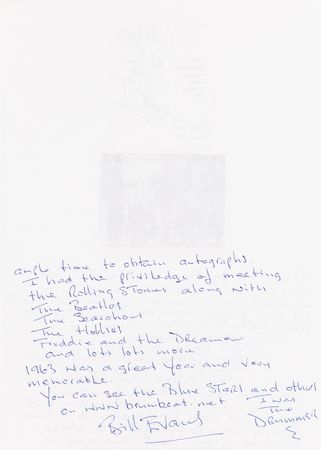 ample time to obtain autographs.
I had the priviledge of meeting
the Rolling Stones along with
The Beatles
The Searchers
The Hollies
Freddie and the Dreamers
and lots lots more
1963 was a great year and very
memorable.
You can see the Blue STARS and others
on www brumbeat.net
I was
The
DRUMMER
Bill Evans